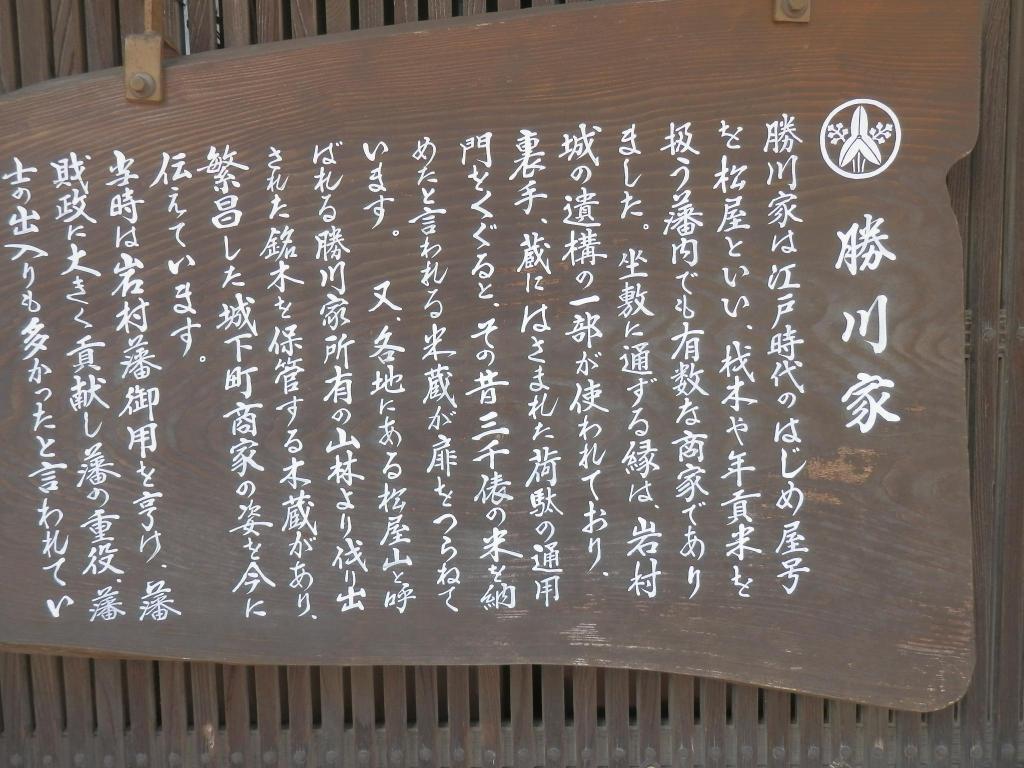 勝川家
勝川家は江戸時代のはじめ屋号
を松屋といい、材木や年貢米を
扱う藩内でも有数な商家であり
ました。坐敷に通ずる縁は、岩村
城の遺構の一部が使われており、
裏手、蔵にはさまれた荷駄の通用
門をくぐると、その昔三千俵の米を納
めたと言われる米蔵が扉をつらねて
います。 又、各地にある松屋山と呼
ばれる勝川家所有の山林より伐り出
された銘木を保管する木蔵があり、
繁昌した城下町商家の姿を今に
伝えています。
当時は岩村藩御用を享け、藩
財政に大きく貢献し藩の重役、藩
士の出入りも多かったと言われてい